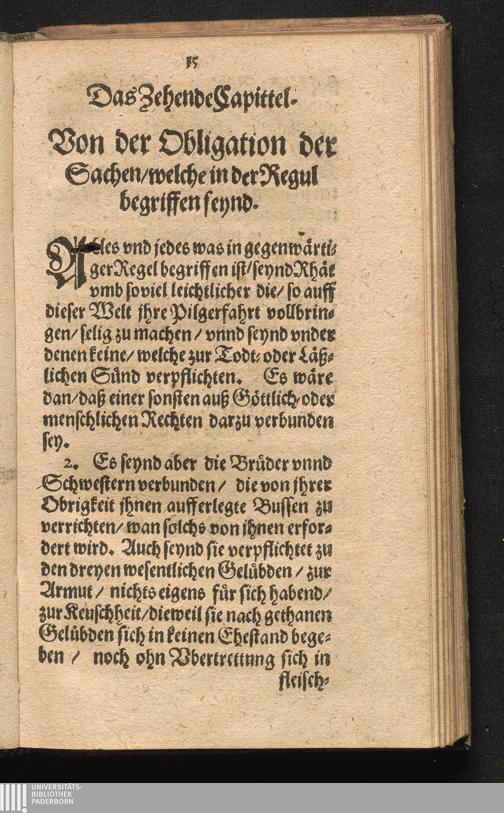 85
Das Zehende Capittel.
Von der Obligation der
Sachen/welche in der Regul
begriffen seynd.
Alles vnd jedes was in gegenwärti⸗
ger Regel begriffen ist/seynd Rhät
vmb soviel leichtlicher die/ so auff
dieser Welt jhre Pilgerfahrt vollbrin⸗
gen/ selig zu machen/ vnnd seynd vnder
denen keine/ welche zur Todt⸗ oder Läß⸗
lichen Sünd verpflichten. Es wäre
dan/ daß einer sonsten auß Göttlich⸗ oder
menschlichen Rechten darzu verbunden
sey.
2. Es seynd aber die Brüder vnnd
Schwestern verbunden/ die von jhrer
Obrigkeit jhnen aufferlegte Bussen zu
verrichten/ wan solchs von jhnen erfor⸗
dert wird. Auch seynd sie verpflichtet zu
den dreyen wesentlichen Gelübden/ zur
Armut/ nichts eigens für sich habend/
zur Keuschheit/dieweil sie nach gethanen
Gelübden sich in keinen Ehestand bege⸗
ben/ noch ohn Vbertrettung sich in
fleisch⸗
UNIVERSITÄTS-
BIBLIOTHEK
PADERBORN